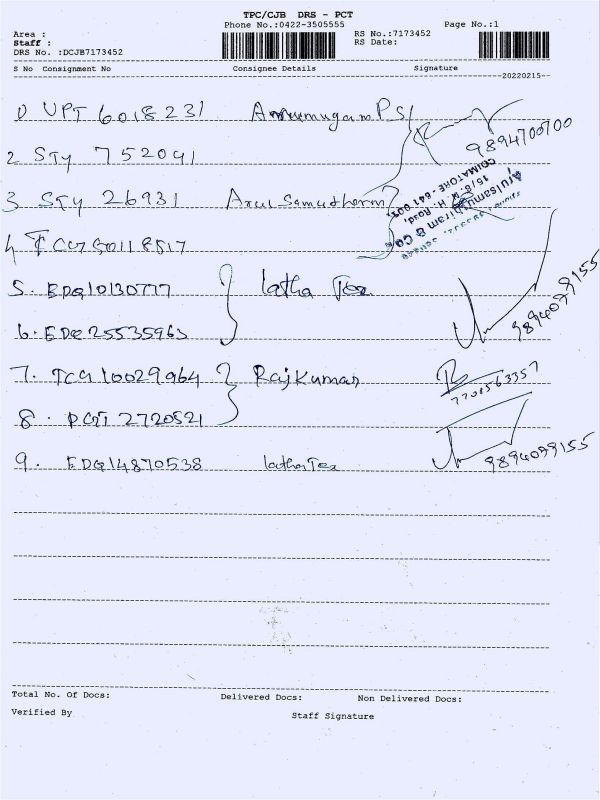 TPC/CJB DRS - PCT
Phone No.:0422-3505555
Page No.:1
Area :
RS No.:7173452
Staff :
RS Date:
DRS No. :DCJB7173452
S No Consignment No Consignee Details Signature
20220215
1) UPT 6018231 Arumugam P S
9894700700
2 STY 752041
3 STY 26931 Arul Samutharm
Arulsamuthiram & Co
15/8, H. Road,
COIMATORE - 641 001
4 TCG750118517
5. EDQ10130777 latha Tex
9894099155
6. EDQ25535963
7. TCG10029964 RajKumar
7708563357
8. PGT 2720521
9. EDQ14870538 latha Tex
9894099155
Total No. Of Docs: Delivered Docs: Non Delivered Docs:
Verified By Staff Signature